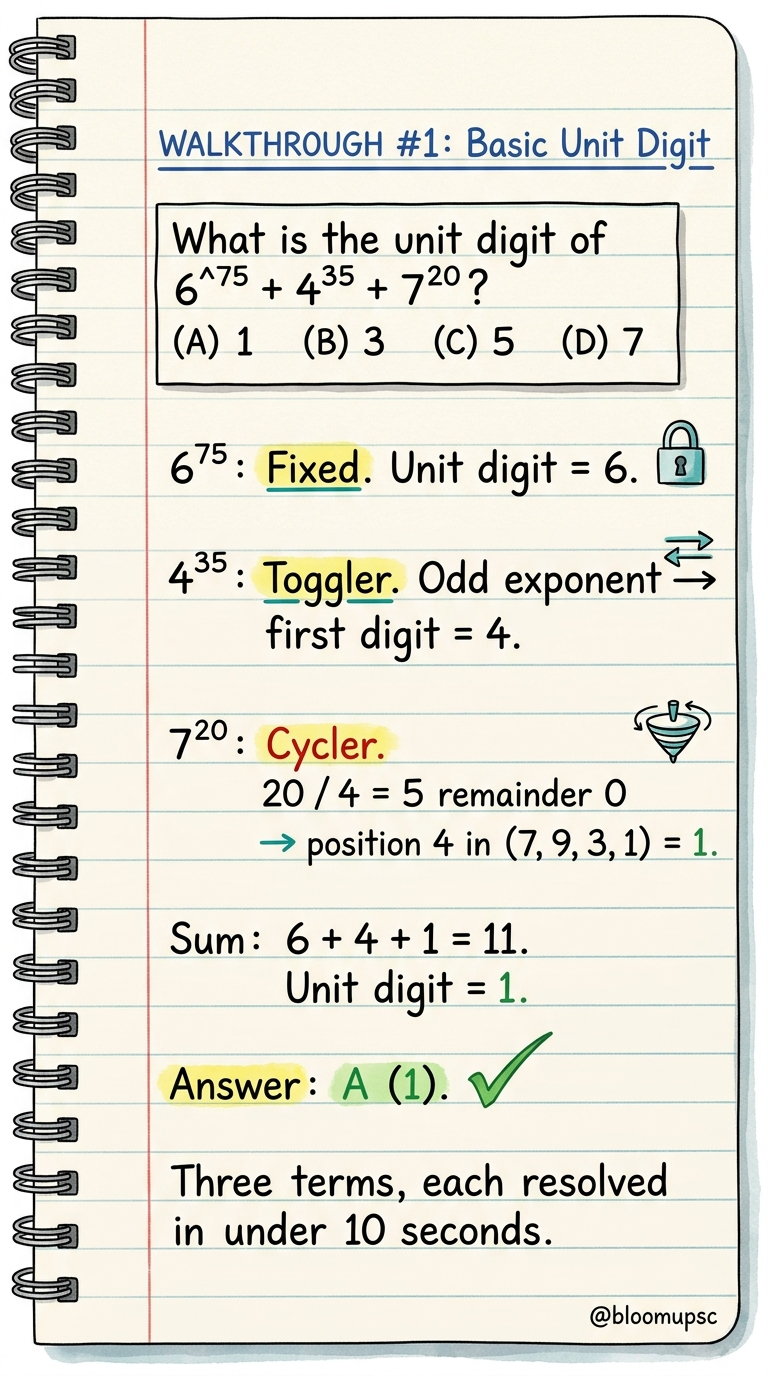 WALKTHROUGH #1: Basic Unit Digit
What is the unit digit of
6^⁷⁵ + 4³⁵ + 7²⁰?
(A) 1 (B) 3 (C) 5 (D) 7
6⁷⁵: Fixed. Unit digit = 6.
4³⁵: Toggler. Odd exponent →
first digit = 4.
7²⁰: Cycler.
20 / 4 = 5 remainder 0
→ position 4 in (7, 9, 3, 1) = 1.
Sum: 6 + 4 + 1 = 11.
Unit digit = 1.
Answer: A (1).
Three terms, each resolved
in under 10 seconds.
@bloomupsc